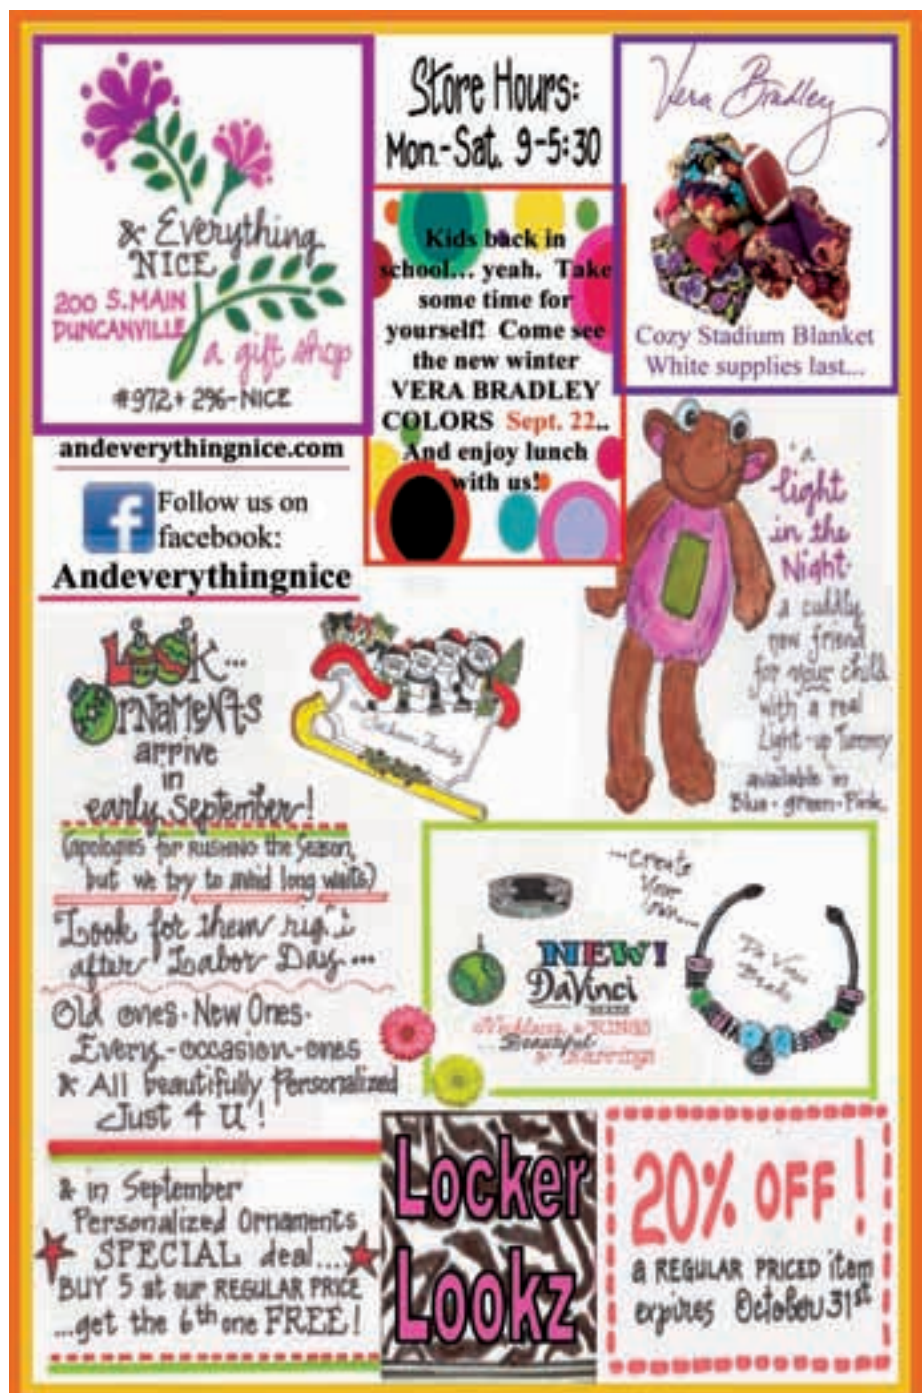 & Everything
NICE
200 S.MAIN
DUNCANVILLE
a gift shop
#972+ 296-NICE
andeverythingnice.com
Follow us on
facebook:
Andeverythingnice
Store Hours:
Mon-Sat. 9-5:30
Kids back in
school... yeah. Take
some time for
yourself! Come see
the new winter
VERA BRADLEY
COLORS Sept. 22..
And enjoy lunch
with us!
Vera Bradley
Cozy Stadium Blanket
White supplies last...
"a
light
in the
Night"
a cuddly
new friend
for your child
with a real
Light-up Tummy
available in
Blue-green-Pink
LOOK...
ORNAMENTS
arrive
in
early September!
(apologies for RUSHING the Season,
but we try to avoid long waits)
Look for them
after Labor Day...
Old ones-New Ones-
Every-occasion-ones
& All beautifully Personalized
Just 4 U!
Family
...Create
Your
Own...
NEW!
DaVinci
BEADS
Necklaces & RINGS
Beautiful
& Earrings
Da Vinci
Beads
& in September
Personalized Ornaments
SPECIAL deal...
BUY 5 at our REGULAR PRICE
...get the 6th one FREE!
Locker
Lookz
20% OFF!
a REGULAR PRICED item
expires October 31st